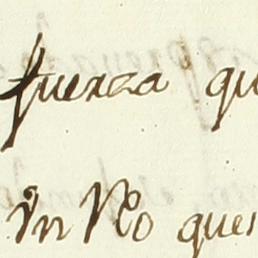 fuerza qu
in No ques